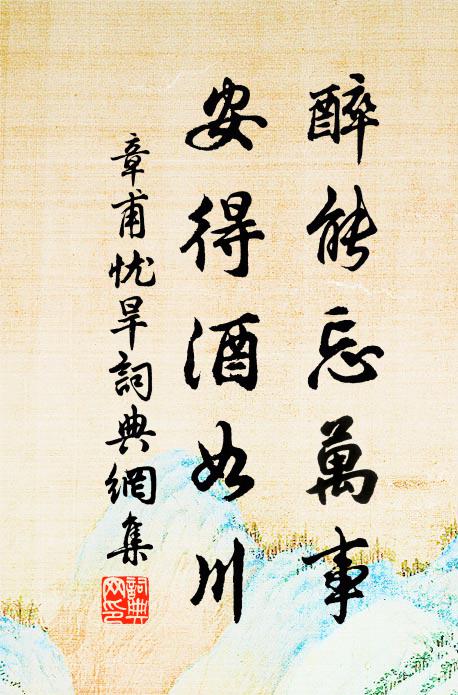 醉能忘萬事
安得酒如川
章甫忧旱詞典網集
詞典網印